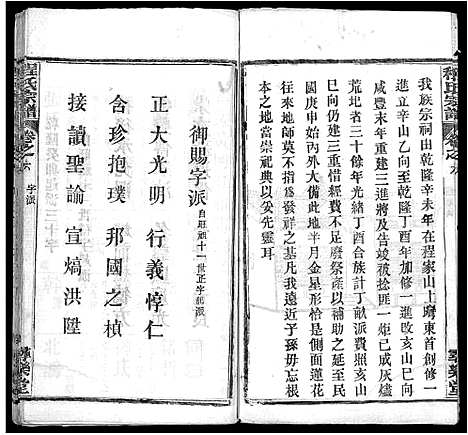 程氏宗譜
我族宗祠由乾隆辛未年在程家山上廇東首創修一
進立辛山乙向至乾隆丁酉年加修一進改亥山巳向
咸豐末年重建三進將及告竣被捻匪一炬已成灰燼
荒圮者三十餘年光緒丁酉合族計丁畝派費照亥山
巳向仍建三重惜經費不足廢祭產以益之延至民
國庚申始內外大備此地半月金星形恰是側面蓮花
往來地師莫不指爲發祥之基凡我遠近子孫毋忘根
本之地當崇祀典以妥先靈耳
御賜字派
自班祖十一世正字起派
正大光明 行義惇仁
含珍抱璞 邦國之楨
接讀聖諭 宣熇洪陞
程氏宗譜
卷之六
字派